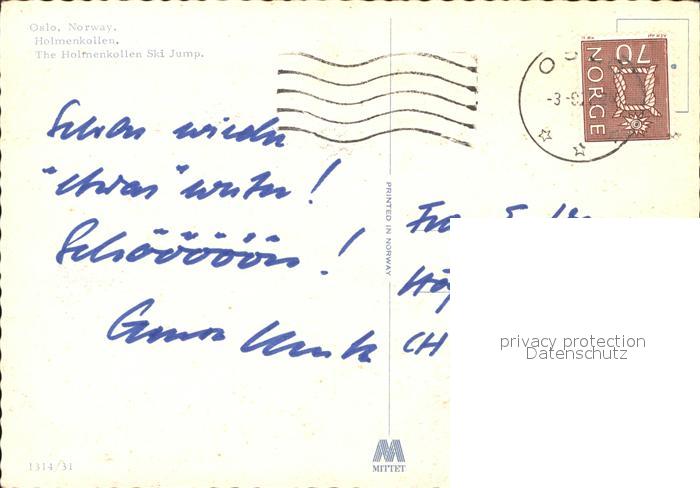 Oslo, Norway.
Holmenkollen.
The Holmenkollen Ski Jump.
Schon wieder
"etwas" weiter!
Schöööööön!
PRINTED IN NORWAY
70
NORGE
-3-
CH
privacy protection
Datenschutz
1314/31
MITTET